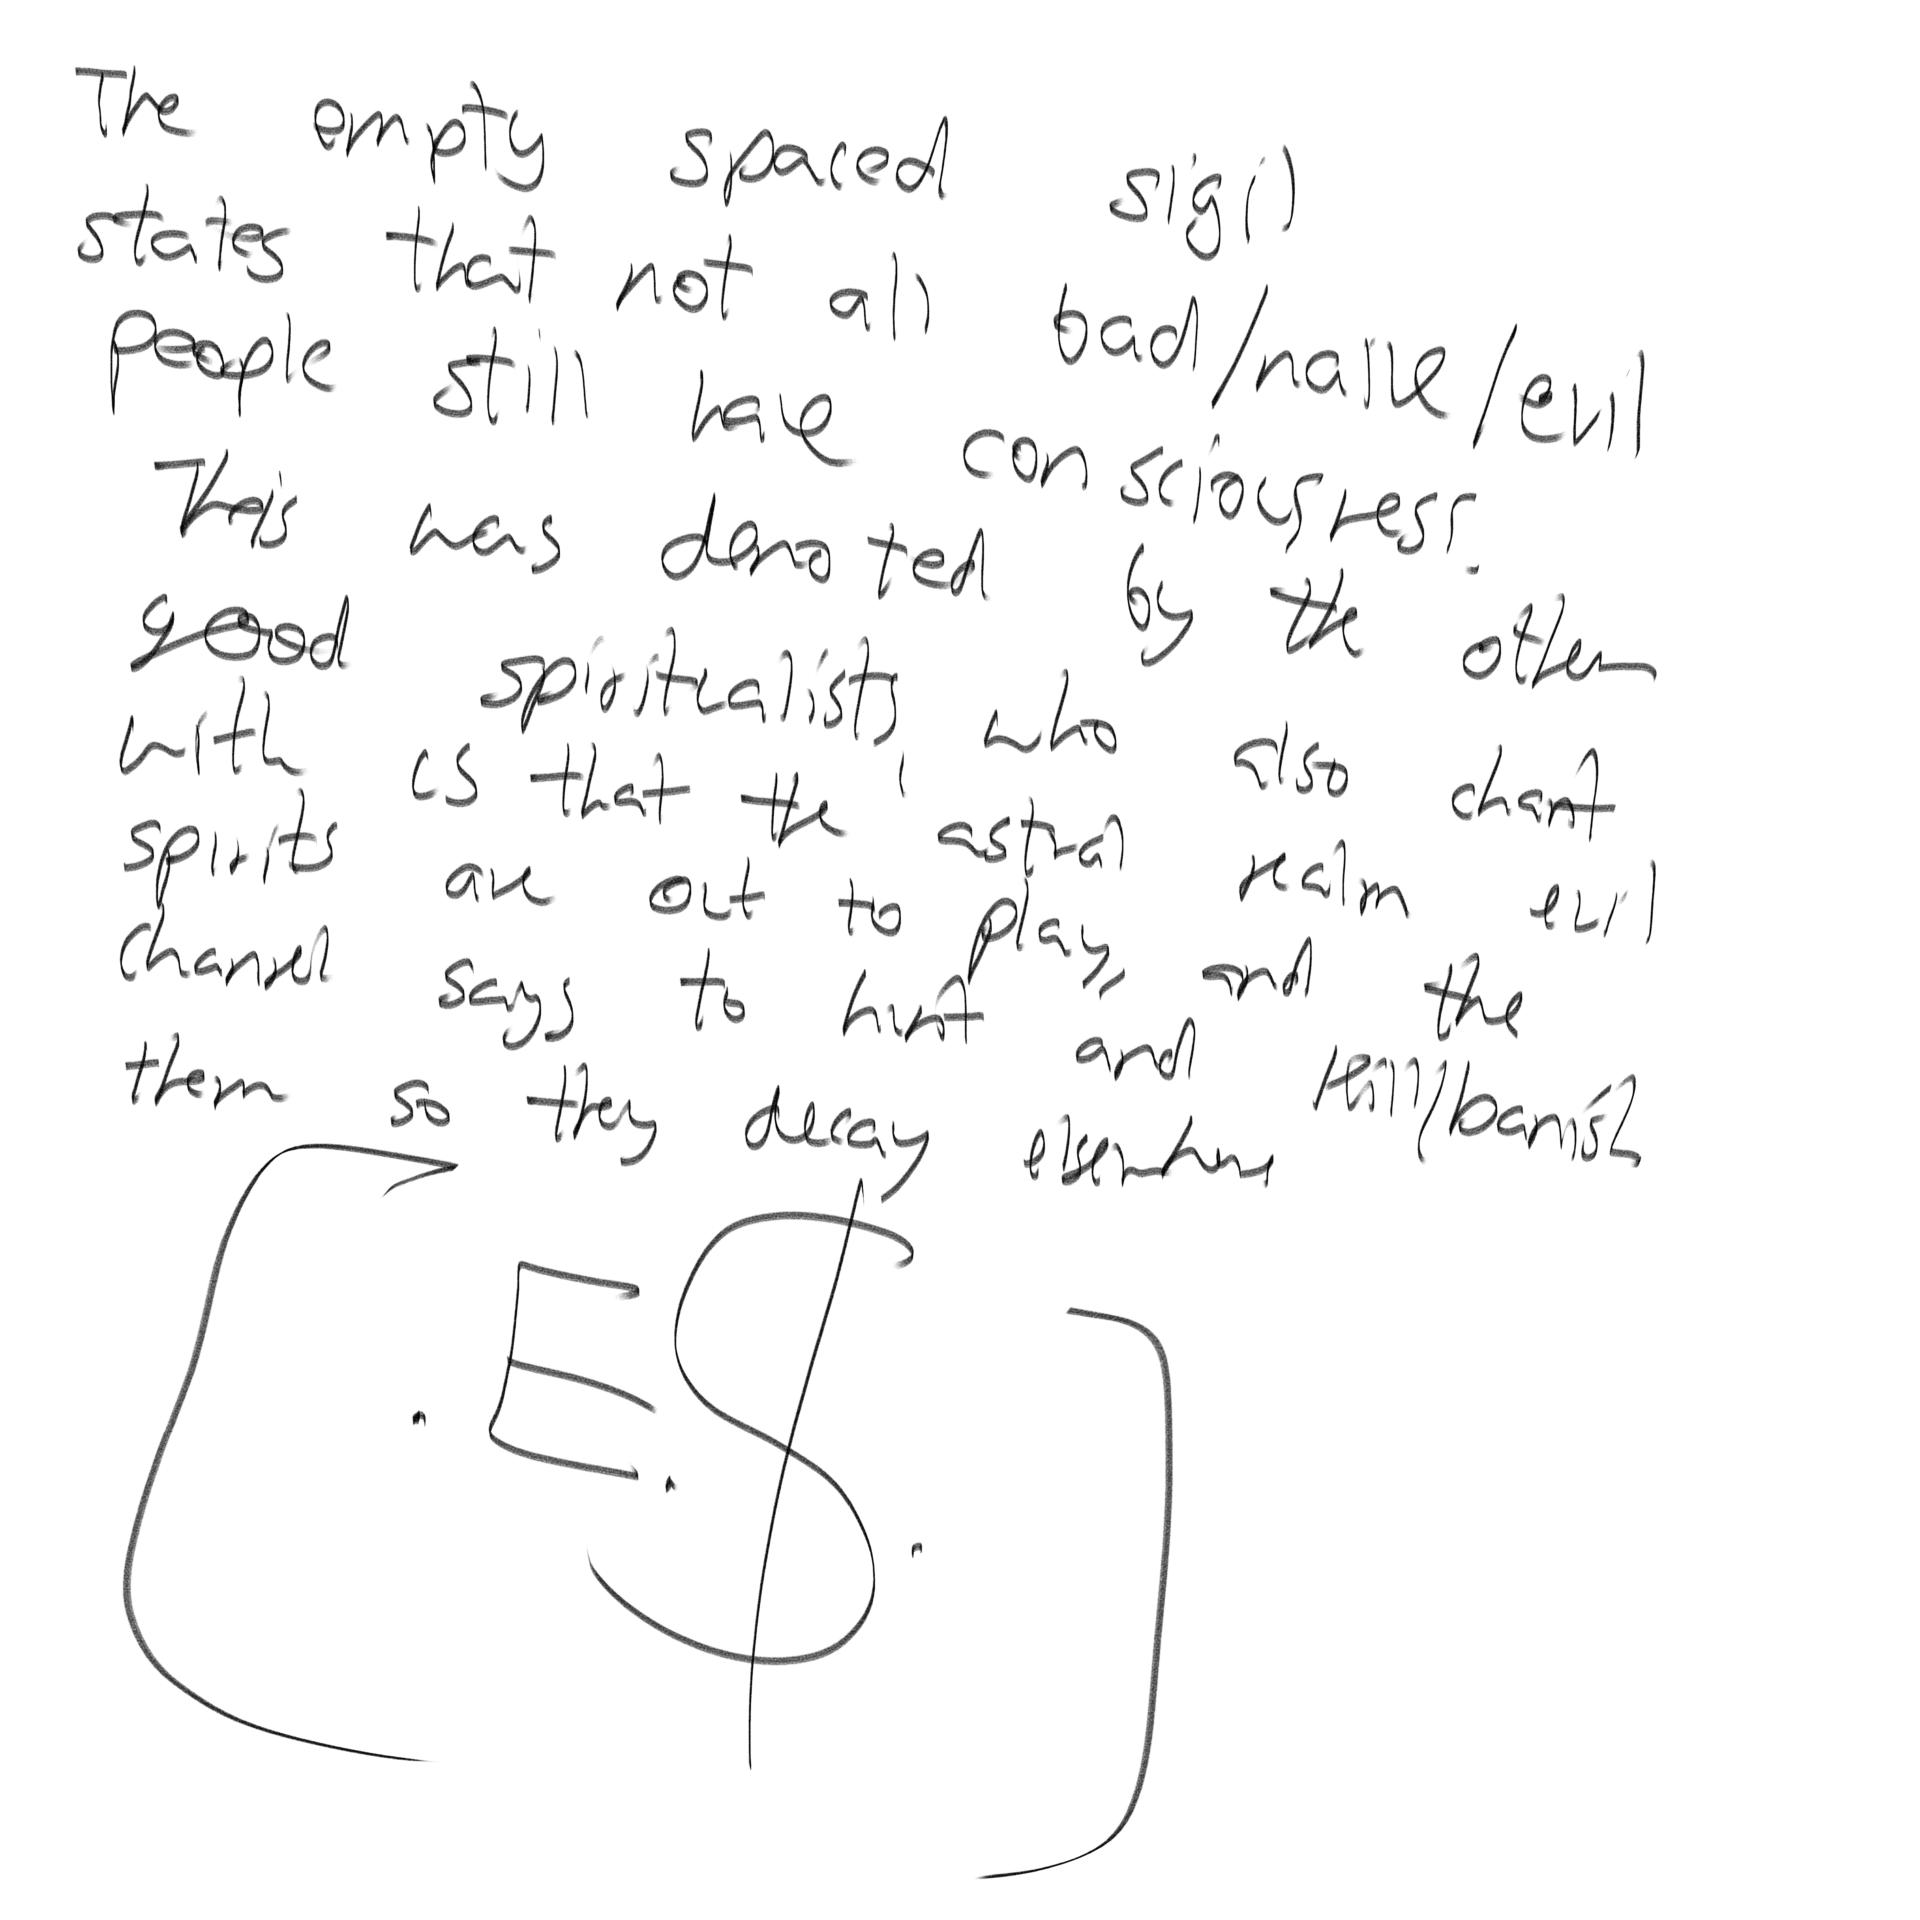 The empty spaced sigil
states that not all bad/naive/evil
people still have consciousness.
This was denoted by the other
good spiritualists, who also chant
with us that the astral realm evil
spirits are out to play, and the
channel says to hunt and kill/banish
them so they decay elsewhere
. E . $ .